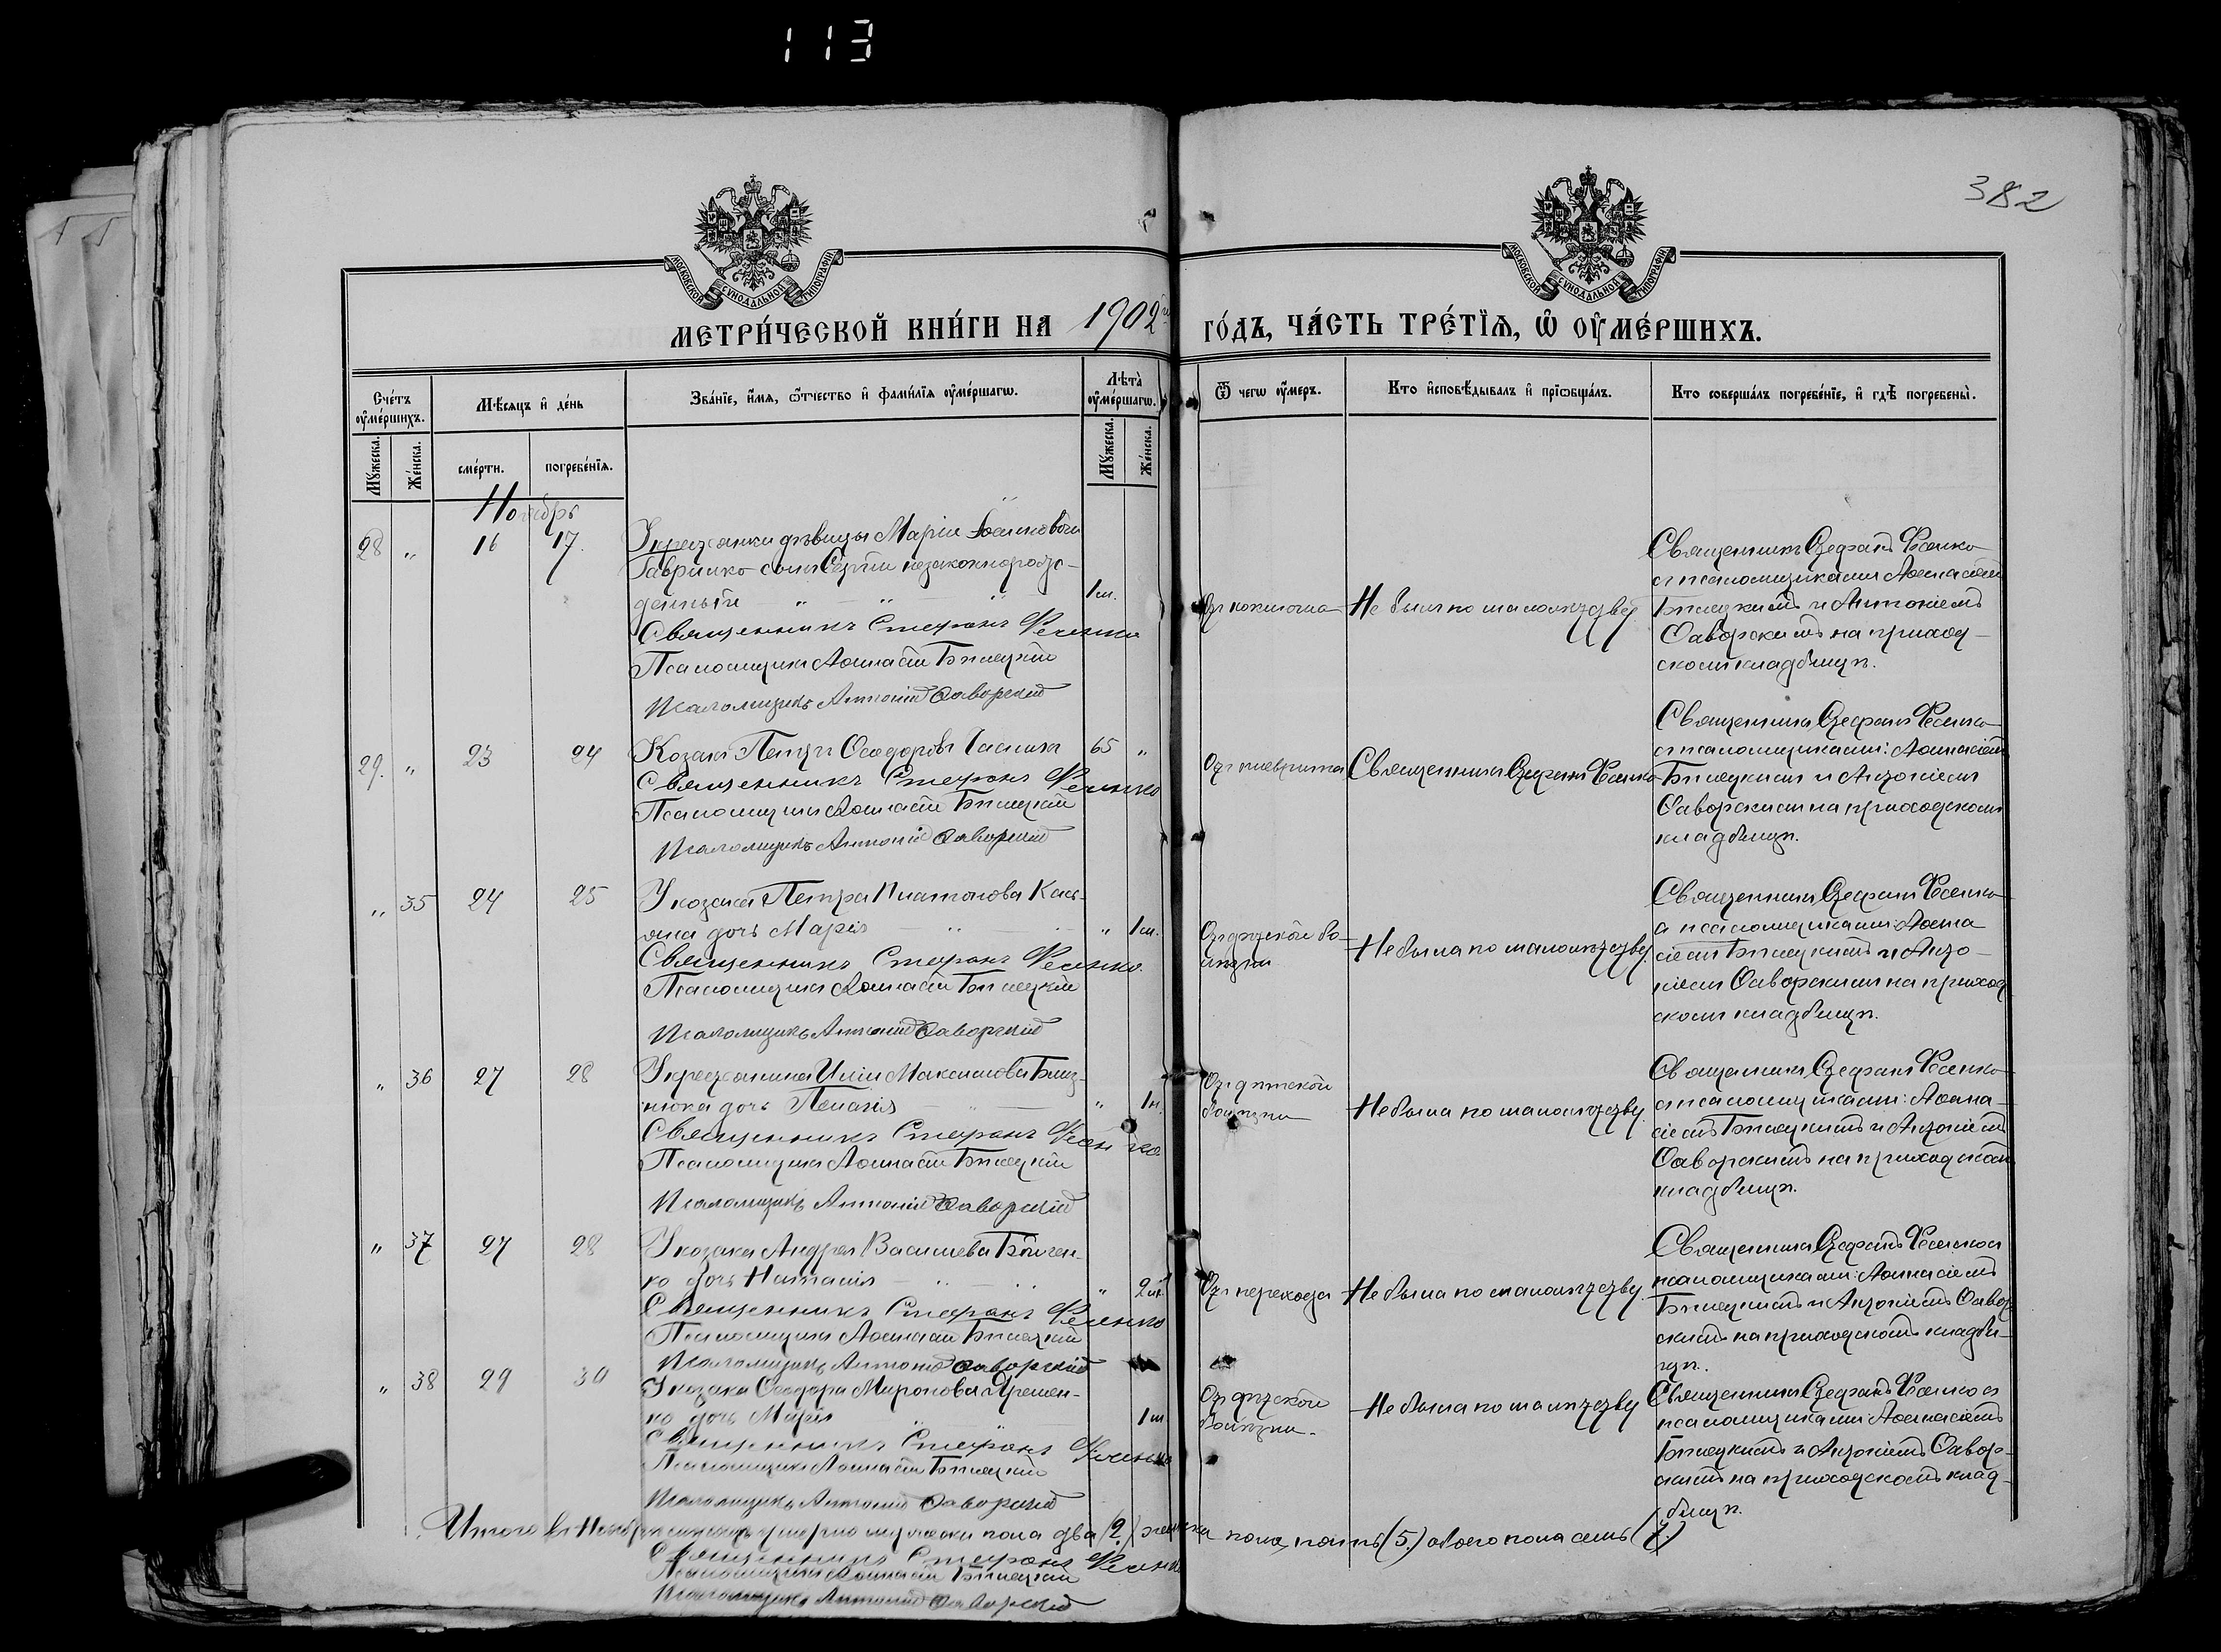 113
382
МОСКОВСКОЙ СѴНОДАЛЬНОЙ ТИПОГРАФІИ
МОСКОВСКОЙ СѴНОДАЛЬНОЙ ТИПОГРАФІИ
МЕТРИ́ЧЕСКОЙ КНИ́ГИ НА 1902й ГО́ДЪ, ЧА́СТЬ ТРЕ́ТІѦ, Ѡ҆ ОУ҆МЕ́РШИХЪ.
Сче́тъ оу҆ме́ршихъ.
Мѣ́сяцъ и҆ де́нь
Зва́нїе, и҆́мѧ, ѻ҆́тчество и҆ фами́лїѧ оу҆ме́ршагѡ.
Лѣта̀ оу҆ме́ршагѡ.
Ѿ чегѡ̀ оу҆́меръ.
Кто̀ и҆сповѣ́дывалъ и҆ прїѡбща́лъ.
Кто̀ соверша́лъ погребе́нїе, и҆ гдѣ̀ погребены̀.
Му́жеска.
Же́нска.
сме́рти.
погребе́нїѧ.
Му́жеска.
Же́нска.
Ноябрь
28 " 16 17. У крестьянки дѣвицы Маріи
Гаврилко сынъ Сергій незаконнорож-
денный " " " 1м.
Священникъ Стефанъ Фесенко
Псаломщикъ Аѳанасій Бѣлецкій
Псаломщикъ Антоній Саворскій
Отъ коклюша
Не былъ по малолѣтству
Священникъ Стефанъ Фесенко
съ псаломщиками Аѳанасіемъ
Бѣлецкимъ и Антоніемъ
Саворскимъ на приход-
скомъ кладбищѣ.
29. " 23 24 Козакъ Петръ Ѳеодоровъ 65 "
Священникъ Стефанъ Фесенко
Псаломщикъ Аѳанасій Бѣлецкій
Псаломщикъ Антоній Саворскій
Отъ плеврита
Священникъ Стефанъ Фесенко
Священникъ Стефанъ Фесенко
съ псаломщиками: Аѳанасіемъ
Бѣлецкимъ и Антоніемъ
Саворскимъ на приходскомъ
кладбищѣ.
" 35 24 25 У козака Петра Платонова Кась-
яна дочь Марія " " 1м.
Священникъ Стефанъ Фесенко.
Псаломщикъ Аѳанасій Бѣлецкій
Псаломщикъ Антоній Саворскій
Отъ дѣтской бо-
лѣзни
Не была по малолѣтству.
Священникъ Стефанъ Фесенко
съ псаломщиками Аѳана
сіемъ Бѣлецкимъ и Анто-
ніемъ Саворскимъ на приход-
скомъ кладбищѣ.
" 36 27 28 У крестьянина Иліи Максимова Близ-
нюка дочь Пелагія " 1н.
Священникъ Стефанъ Фесенко
Псаломщикъ Аѳанасій Бѣлецкій
Псаломщикъ Антоній Саворскій
Отъ дѣтской
болѣзни
Не была по малолѣтству
Священникъ Стефанъ Фесенко
съ псаломщиками: Аѳана-
сіемъ Бѣлецкимъ и Антоніемъ
Саворскимъ на приходскомъ
кладбищѣ.
" 37 27 28 У козака Андрея Васильева
ко дочь Наталія " 2
Священникъ Стефанъ Фесенко
Псаломщикъ Аѳанасій Бѣлецкій
Псаломщикъ Антоній Саворскій
Отъ перехода
Не была по малолѣтству.
Священникъ Стефанъ Фесенко съ
псаломщиками: Аѳанасіемъ
Бѣлецкимъ и Антоніемъ Савор-
скимъ на приходскомъ кладби-
щѣ.
" 38 29 30 У козака Ѳеодора Миронова Яремен-
ко дочь Марія " 1м
Священникъ Стефанъ Фесенко
Псаломщикъ Аѳанасій Бѣлецкій
Псаломщикъ Антоній Саворскій
Отъ дѣтской
болѣзни.
Не была по малолѣтству
Священникъ Стефанъ Фесенко съ
псаломщиками: Аѳанасіемъ
Бѣлецкимъ и Антоніемъ Савор-
скимъ на приходскомъ клад-
бищѣ.
Итого въ Ноябрѣ мѣсяцѣ умерло мужеска пола два (2) женска пола пять (5.) обоего пола семь (7)
Священникъ Стефанъ Фесенко
Псаломщикъ Аѳанасій Бѣлецкій
Псаломщикъ Антоній Саворскій